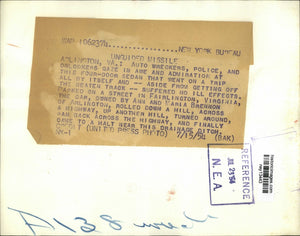 WAP 1062374 NEW YORK BUREAU
UNGUIDED MISSILE
ARLINGTON, VA.: AUTO WRECKERS, POLICE, AND
ONLOOKERS GAZE IN AWE AND ADMIRATION AT
THIS FOUR-DOOR SEDAN THAT WENT ON A TRIP
ALL BY ITSELF AND -- ASIDE FROM GETTING OFF
THE BEATEN TRACK -- SUFFERED NO ILL EFFECTS.
PARKED ON A STREET IN FAIRLINGTON, VIRGINIA,
THE CAR, OWNED BY ANN AND TANIA
OF ARLINGTON, ROLLED DOWN A HILL, ACROSS
A HIGHWAY, UP ANOTHER HILL, TURNED AROUND,
RAN BACK ACROSS THE HIGHWAY, AND FINALLY
CAME TO A HALT HERE IN A DRAINAGE DITCH.
CREDIT (UNITED PRESS PHOTO) 7/13/54 (BAK)
REFERENCE
N.E.A.